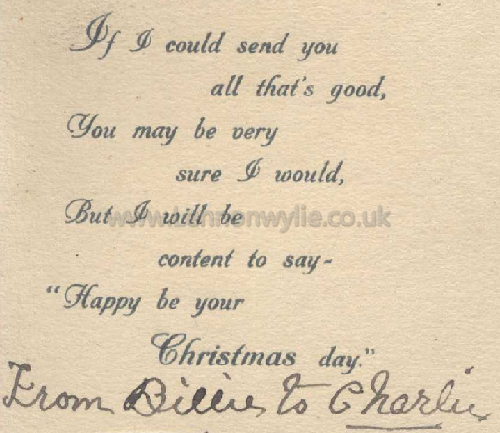 If I could send you
all that's good,
You may be very
sure I would,
But I will be
content to say-
"Happy be your
Christmas day."
From Billie to Charlie